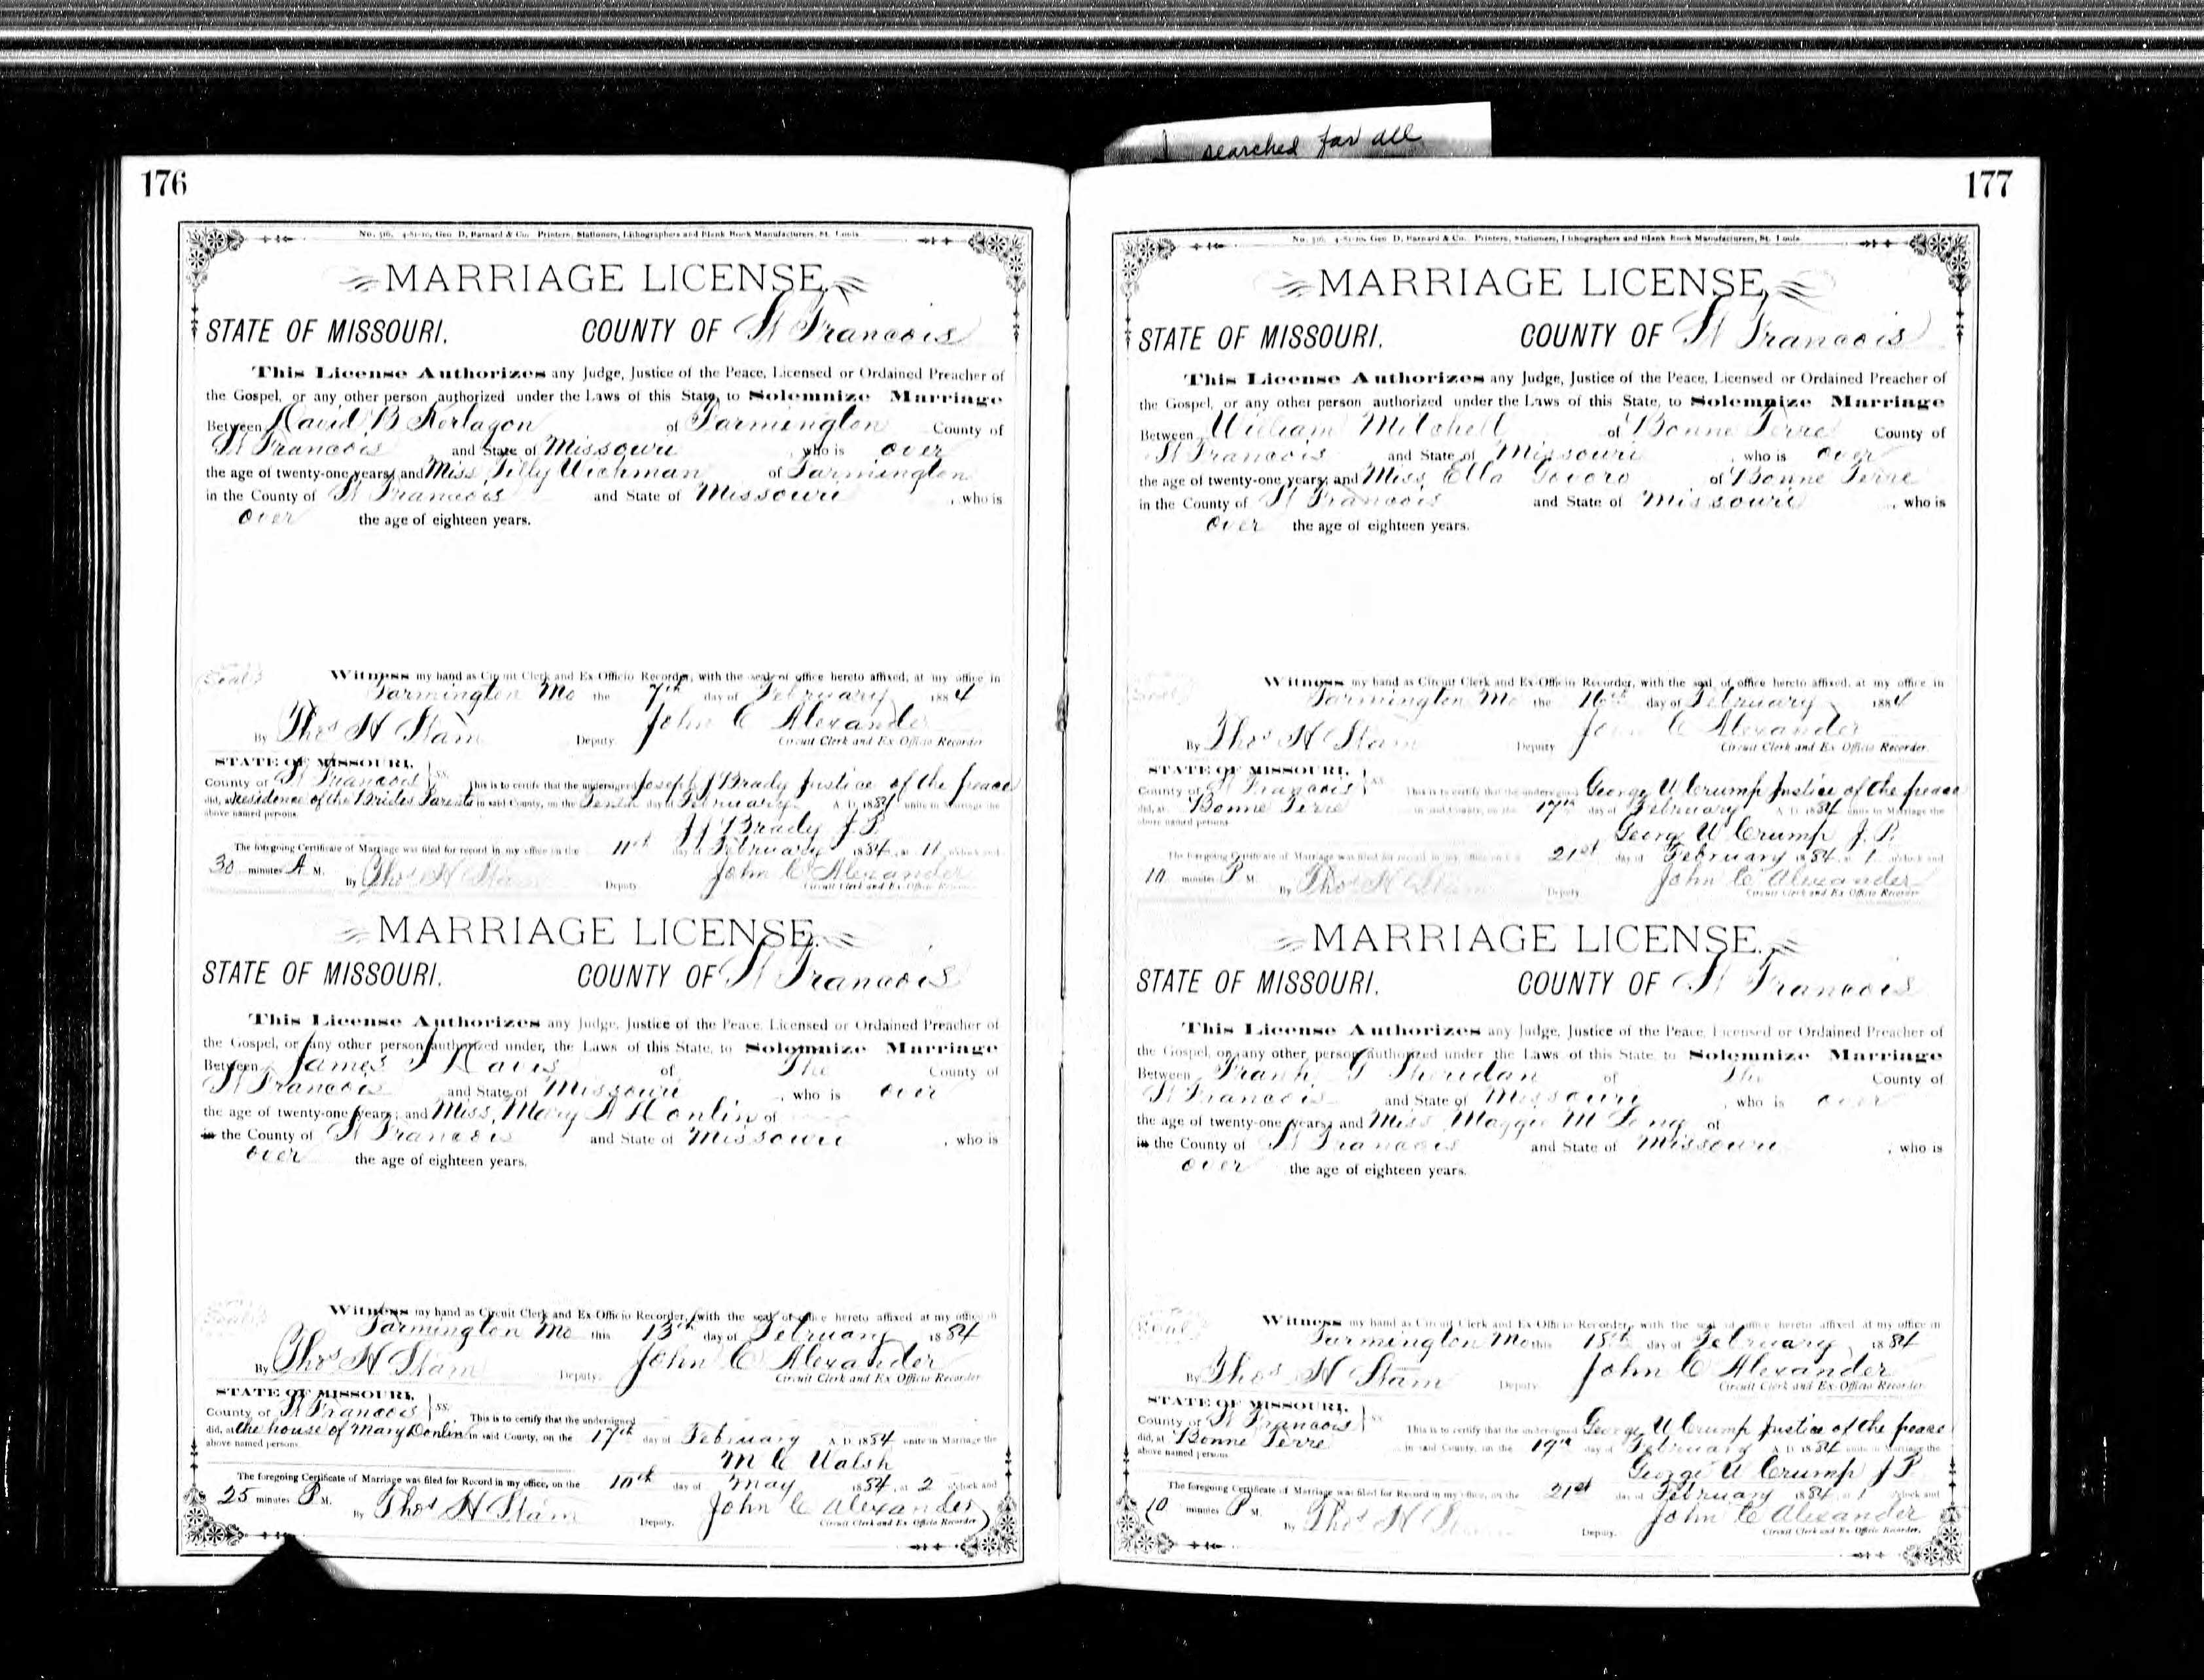 searched for all
176
No. 516. 4-81-10, Geo. D. Barnard & Co. Printers, Stationers, Lithographers and Blank Book Manufacturers, St. Louis
MARRIAGE LICENSE.
STATE OF MISSOURI. COUNTY OF St Francois
This License Authorizes any Judge, Justice of the Peace, Licensed or Ordained Preacher of
the Gospel, or any other person authorized under the Laws of this State, to Solemnize Marriage
Between David B of Farmington County of
St Francois and State of Missouri, who is over
the age of twenty-one years; and Miss Tilly Wichman of Farmington
in the County of St Francois and State of Missouri, who is
over the age of eighteen years.
Seal Witness my hand as Circuit Clerk and Ex-Officio Recorder, with the seal of office hereto affixed, at my office in
Farmington Mo the 7th day of February 1884
By Thos H Stam Deputy. John C Alexander
Circuit Clerk and Ex Officio Recorder
STATE OF MISSOURI,
County of St Francois ss. This is to certify that the undersigned Joseph J Brady Justice of the peace
did, at Residence of the Brides Parents in said County, on the Tenth day of February A. D. 1884 unite in Marriage the
above named persons
J J Brady J. P.
The foregoing Certificate of Marriage was filed for record in my office on the 11th day of February 1884, at 11 o'clock and
30 minutes A M. By Thos H Stam Deputy John C Alexander
Circuit Clerk and Ex Officio Recorder
MARRIAGE LICENSE.
STATE OF MISSOURI. COUNTY OF St Francois
This License Authorizes any Judge, Justice of the Peace, Licensed or Ordained Preacher of
the Gospel, or any other person authorized under the Laws of this State, to Solemnize Marriage
Between James Davis of The County of
St Francois and State of Missouri, who is over
the age of twenty-one years; and Miss Mary A Donlin of
in the County of St Francois and State of Missouri, who is
over the age of eighteen years.
Seal Witness my hand as Circuit Clerk and Ex Officio Recorder, with the seal of office hereto affixed at my office in
Farmington Mo this 13th day of February 1884
By Thos H Stam Deputy. John C Alexander
Circuit Clerk and Ex Officio Recorder
STATE OF MISSOURI,
County of St Francois ss. This is to certify that the undersigned
did, at the house of Mary Donlin in said County, on the 17th day of February A. D. 1884 unite in Marriage the
above named persons
M C Walsh
The foregoing Certificate of Marriage was filed for Record in my office, on the 10th day of May 1884, at 2 o'clock and
25 minutes P M. By Thos H Stam Deputy. John C Alexander
Circuit Clerk and Ex Officio Recorder
177
No. 516. 4-81-10, Geo. D. Barnard & Co. Printers, Stationers, Lithographers and Blank Book Manufacturers, St. Louis
MARRIAGE LICENSE.
STATE OF MISSOURI. COUNTY OF St Francois
This License Authorizes any Judge, Justice of the Peace, Licensed or Ordained Preacher of
the Gospel, or any other person authorized under the Laws of this State, to Solemnize Marriage
Between William Mitchell of Bonne Terre County of
St Francois and State of Missouri, who is over
the age of twenty-one years; and Miss Ella Govoro of Bonne Terre
in the County of St Francois and State of Missouri, who is
over the age of eighteen years.
Seal Witness my hand as Circuit Clerk and Ex-Officio Recorder, with the seal of office hereto affixed, at my office in
Farmington Mo the 16th day of February 1884
By Thos H Stam Deputy John C Alexander
Circuit Clerk and Ex Officio Recorder.
STATE OF MISSOURI,
County of St Francois ss This is to certify that the undersigned George W Crump Justice of the peace
did, at Bonne Terre in said County, on the 17th day of February A. D. 1884 unite in Marriage the
above named persons
George W Crump J. P.
The foregoing Certificate of Marriage was filed for record in my office on the 21st day of February 1884, at 1 o'clock and
10 minutes P M. By Thos H Stam Deputy John C Alexander
Circuit Clerk and Ex Officio Recorder
MARRIAGE LICENSE.
STATE OF MISSOURI. COUNTY OF St Francois
This License Authorizes any Judge, Justice of the Peace, Licensed or Ordained Preacher of
the Gospel, or any other person authorized under the Laws of this State to Solemnize Marriage
Between Frank G Sheridan of The County of
St Francois and State of Missouri, who is over
the age of twenty-one years; and Miss Maggie M Long of
in the County of St Francois and State of Missouri, who is
over the age of eighteen years.
Seal Witness my hand as Circuit Clerk and Ex Officio Recorder, with the seal of office hereto affixed at my office in
Farmington Mo this 18th day of February 1884
By Thos H Stam Deputy John C Alexander
Circuit Clerk and Ex-Officio Recorder.
STATE OF MISSOURI,
County of St Francois ss This is to certify that the undersigned George W Crump Justice of the peace
did, at Bonne Terre in said County, on the 19th day of February A. D. 1884 unite in Marriage the
above named persons
George W Crump J P.
The foregoing Certificate of Marriage was filed for Record in my office, on the 21st day of February 1884, at 1 o'clock and
10 minutes P M. By Thos H Stam Deputy. John C Alexander
Circuit Clerk and Ex Officio Recorder.